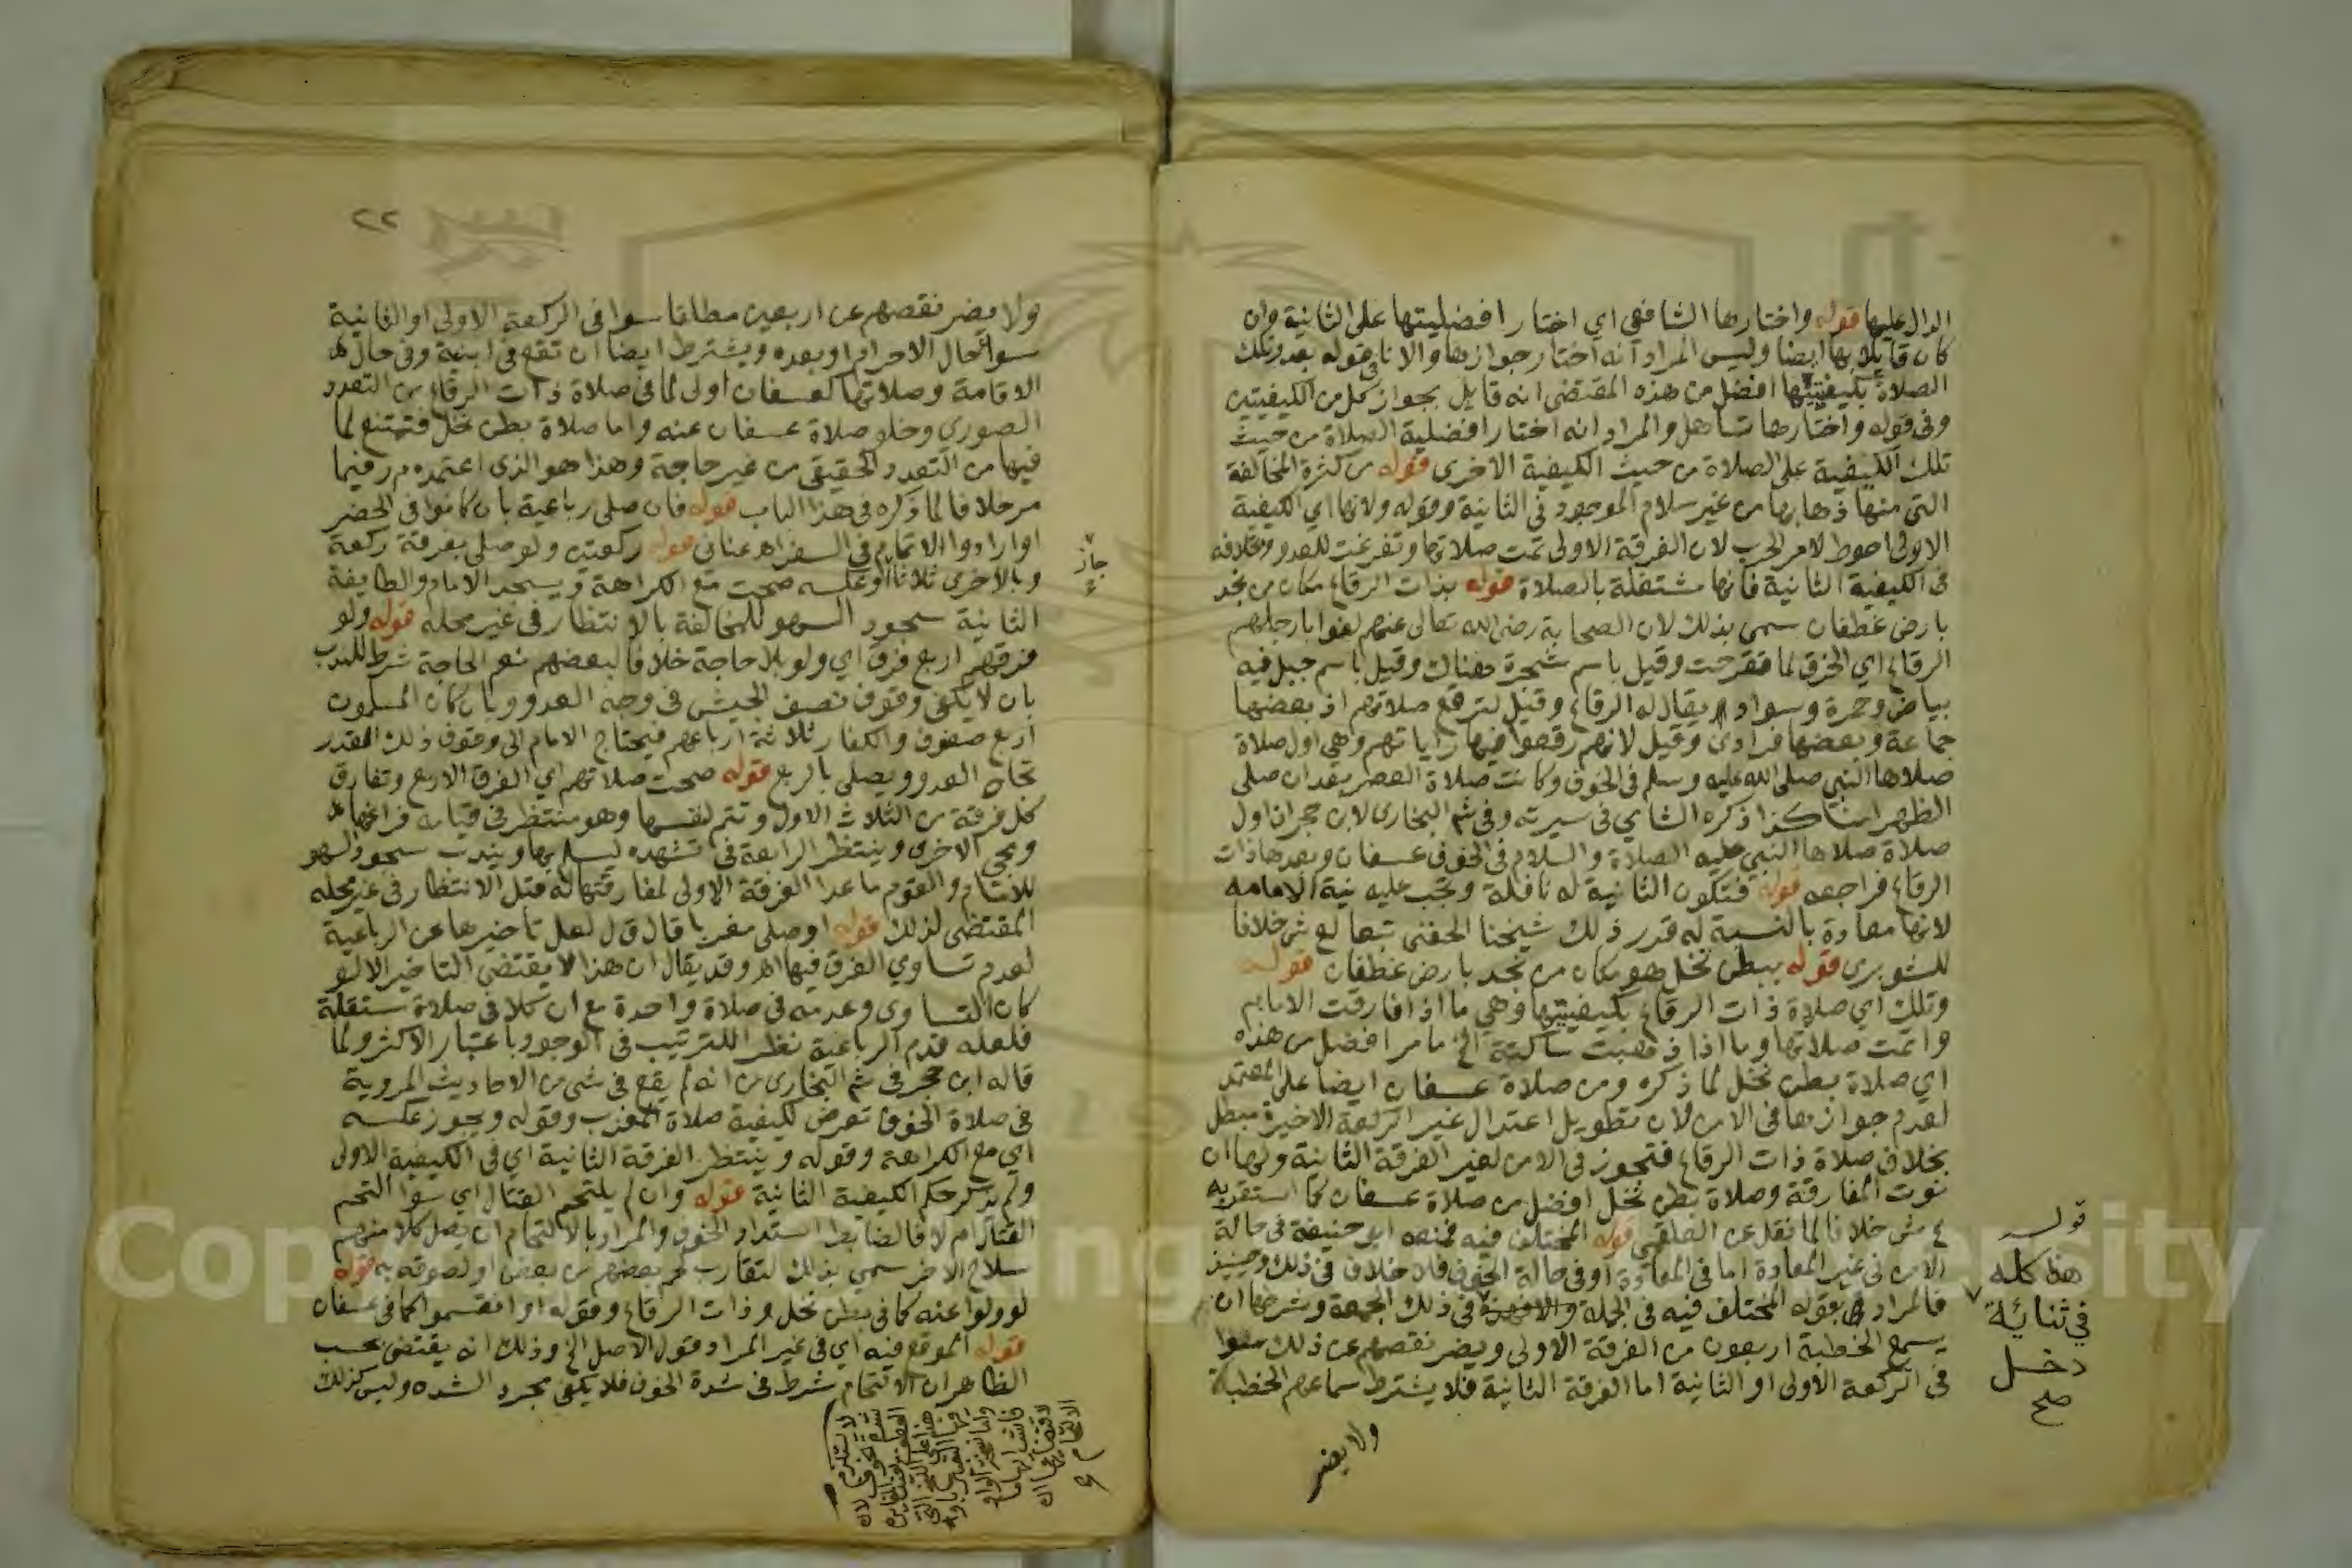 الدال عليها قوله واختارها الشافعي اي اختار افضليتها على الثانية وان
كان قايلا بها ايضا وليس المراد انه اختار جوازها والا نافى قوله بعد وتلك
الصلاة بكيفيتيها افضل من هذه المقتضى انه قايل بجواز كل من الكيفيتين
وفى قوله واختارها تساهل والمراد انه اختار افضلية الصلاة من حيث
تلك الكيفية على الصلاة من حيث الكيفية الاخرى قوله من كثرة المخالفة
التى منها ذهابها من غير سلام الموجود فى الثانية وقوله ولانها اي الكيفية
الاولى احوط لامر الحرب لان الفرقة الاولى تمت صلاتها وتفرغت للعدو وبخلافه
فى الكيفية الثانية فانها مشتغلة بالصلاة قوله بذات الرقاع مكان من نجد
بارض غطفان سمي بذلك لان الصحابة رضى الله تعالى عنهم لفوا بارجلهم
الرقاع اي الخرق لما تقرحت وقيل باسم شجرة هناك وقيل باسم جبل فيه
بياض وحمرة وسواد يقال له الرقاع وقيل لترقع صلاتهم اذ بعضها
جماعة وبعضها فرادى وقيل لانهم رقعوا فيها راياتهم وهي اول صلاة
صلاها النبي صلى الله عليه وسلم فى الخوف وكانت صلاة العصر بعد ان صلى
الظهر كذا ذكره الشامي فى سيرته وفى شم البخارى لابن حجر ان اول
صلاة صلاها النبي عليه الصلاة والسلام فى الخوف عسفان وبعدها ذات
الرقاع فراجعه قوله فتكون الثانية له نافلة وتجب عليه نية الامامه
لانها معادة بالنسبة له قدر ذلك شيخنا الحفنى تبعا لع ش خلافا
للشوبرى قوله ببطن نخل هو مكان من نجد بارض غطفان قوله
وتلك اي صلاة ذات الرقاع بكيفيتيها وهي ما اذا فارقت الامام
واتمت صلاتها وما اذا ذهبت ساكتة الخ ما مر افضل من هذه
اي صلاة بطن نخل لما ذكره ومن صلاة عسفان ايضا على المعتمد
لعدم جوازها فى الامن لان تطويل اعتدال غير الركعة الاخيرة مبطل
بخلاف صلاة ذات الرقاع فتجوز فى الامن لغير الفرقة الثانية ولها ان
نوت المفارقة وصلاة بطن نخل افضل من صلاة عسفان كما استقربه
ع ش خلافا لما نقل عن العلقمي قوله المختلف فيه فمنعه ابى حنيفة فى حالة
الامن فى غير المعادة اما فى المعادة او فى حالة الخوف فلا خلاف فى ذلك وحينئذ
فالمراد بقوله المختلف فيه فى الجملة فى ذلك الجمعة وشرطها ان
يسمع الخطبة اربعون من الفرقة الاولى ويضر نقصهم عن ذلك سوا
فى الركعة الاولى او الثانية اما الفرقة الثانية فلا يشترط سماعهم الخطبة
ولا يضر
قوله
هذا كله
في ثنائية
دخل
صح
٢٢
ولا يضر نقصهم عن اربعين مطلقا سوا فى الركعة الاولى او الثانية
سوا حال الاحرام او بعده ويشترط ايضا ان تقع فى ابنية وفى حال
الاقامة وصلاتها كعسفان اولى لما فى صلاة ذات الرقاع من التعدد
الصورى وخلو صلاة عسفان عنه واما صلاة بطن نخل فتمتنع لما
فيها من التعدد الحقيقى من غير حاجة وهذا هو الذى اعتمده م ر فيما
مر خلافا لما ذكره فى هذا الباب قوله فان صلى رباعية بان كانوا فى الحضر
او ارادوا الاتمام فى السفر اهـ عنانى قوله ركعتين ولو صلى بفرقة ركعة
وبالاخرى ثلاثا او عكسه صحت مع الكراهة ويسجد الامام والطايفة
جاز
الثانية سجود السهو للمخالفة بالانتظار فى غير محله قوله ولو
فرقهم اربع فرق اي ولو بلا حاجة خلافا لبعضهم نعم الحاجة شرط للندب
بان لا يكفى وقوف نصف الجيش فى وجه العدو وبان كان المسلمون
اربع صفوف والكفار ثلاثة ارباعهم فيحتاج الامام الى وقوف ذلك القدر
تجاه العدو ويصلى بالربع قوله صحت صلاتهم اي الفرق الاربع وتفارق
كل فرقة من الثلاث الاول وتتم لنفسها وهو منتظر فى قيامه فراغها
ومجى الاخرى وينتظر الرابعة فى تشهده ليسلم بها ويندب سجود السهو
للامام والقوم ما عدا الفرقة الاولى لمفارقتها له قبل الانتظار فى غير محله
المقتضى لذلك قوله او صلى مغربا قال ق ل لعل تاخيرها عن الرباعية
لعدم تساوي الفرق فيها اهـ وقد يقال ان هذا لا يقتضى التاخير الا لو
كان التساوى وعدمه فى صلاة واحدة مع ان كلا فى صلاة مستقلة
فلعله قدم الرباعية نظرا للترتيب فى الوجود باعتبار الاكثر ولما
قاله ابن حجر فى شم البخارى من انه لم يقع فى شى من الاحاديث المروية
فى صلاة الخوف تعرض لكيفية صلاة المغرب وقوله ويجوز عكسه
اي مع الكراهة وقوله وينتظر الفرقة الثانية اي فى الكيفية الاولى
ولم يذكر حكم الكيفية الثانية قوله وان لم يلتحم القتال اي سوا التحم
القتال ام لا فالضابط اشتداد الخوف والمراد بالالتحام ان يصل كلا منهم
سلاح الاخر سمي بذلك لتقارب لحم بعضهم من بعض او لصوقه به قوله
لو ولوا عنه كما فى بطن نخل وذات الرقاع وقوله او انقسموا كما فى عسفان
قوله الموقع فيه اي فى غير المراد وقول الاصل الخ وذلك انه يقتضى بحسب
الظاهر ان الالتحام شرط فى شدة الخوف فلا يكفى مجرد الشده وليس كذلك
Copy King sity